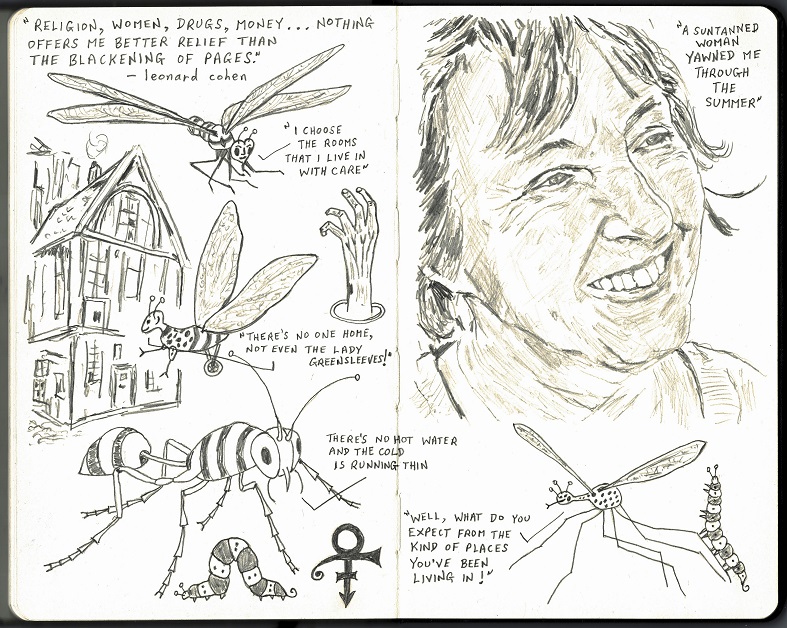 "RELIGION, WOMEN, DRUGS, MONEY... NOTHING
OFFERS ME BETTER RELIEF THAN
THE BLACKENING OF PAGES."
- leonard cohen
"I CHOOSE
THE ROOMS
THAT I LIVE IN
WITH CARE"
"THERE'S NO ONE HOME,
NOT EVEN THE LADY
GREENSLEEVES!"
THERE'S NO HOT WATER
AND THE COLD
IS RUNNING THIN
"A SUNTANNED
WOMAN
YAWNED ME
THROUGH
THE
SUMMER"
"WELL, WHAT DO YOU
EXPECT FROM THE
KIND OF PLACES
YOU'VE BEEN
LIVING IN!"